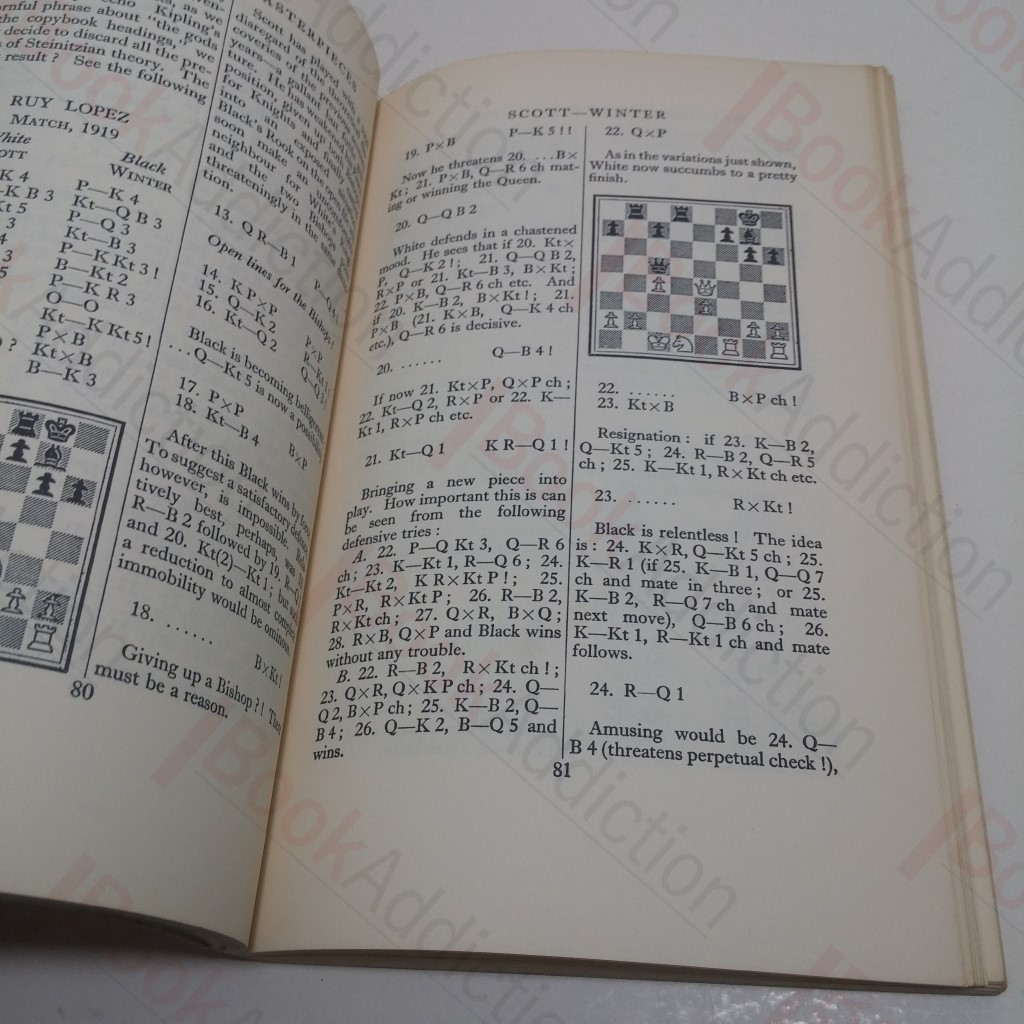 ASTERPIECES
rnful phrase about "the gods
the copybook headings," we
decide to discard all the pre-
of Steinitzian theory. The
result? See the following
RUY LOPEZ
MATCH, 1919
White
Black
WINTER
P—K 4
Kt—Q B 3
P—Q 3
Kt—B 3
P—K Kt 3 !
B—Kt 2
P—K R 3
O—O
Kt—K Kt 5 !
P×B
Kt×B
B—K 3
80
Scott has played with
disregard of the dis-
coveries of the previous
13. Q R—B 1
Open lines for the Bishops !
14. K P×P
15. Q—K 2
16. Kt—Q 2
Black is becoming belligerent.
. . . Q—Kt 5 is now a possibility.
17. P×P
18. Kt—B 4
B×P
After this Black wins by force.
To suggest a satisfactory defence,
however, is impossible. Rela-
tively best, perhaps, was 18.
R—B 2 followed by 19. R—Q 1
and 20. Kt(2)—Kt 1 ; but such
a reduction to almost complete
immobility would be ominous.
18. . . . . . .
B×Kt !
Giving up a Bishop ? ! There
must be a reason.
SCOTT—WINTER
19. P×B P—K 5 ! !
Now he threatens 20. . . . B×
Kt ; 21. P×B, Q—R 6 ch mat-
ing or winning the Queen.
20. Q—Q B 2
White defends in a chastened
mood. He sees that if 20. Kt×
P, Q—K 2 ! ; 21. Q—Q B 2,
R×P or 21. Kt—B 3, B×Kt ;
22. P×B, Q—R 6 ch etc. And
if 20. K—B 2, B×Kt ! ; 21.
P×B (21. K×B, Q—K 4 ch
etc.), Q—R 6 is decisive.
20. . . . . . . Q—B 4 !
If now 21. Kt×P, Q×P ch ;
22. Kt—Q 2, R×P or 22. K—
Kt 1, R×P ch etc.
21. Kt—Q 1 K R—Q 1 !
Bringing a new piece into
play. How important this is can
be seen from the following
defensive tries :
A. 22. P—Q Kt 3, Q—R 6
ch ; 23. K—Kt 1, R—Q 6 ; 24.
Kt—Kt 2, K R×Kt P ! ; 25.
P×R, R×Kt P ; 26. R—B 2,
R×Kt ch ; 27. Q×R, B×Q ;
28. R×B, Q×P and Black wins
without any trouble.
B. 22. R—B 2, R×Kt ch ! ;
23. Q×R, Q×K P ch ; 24. Q—
Q 2, B×P ch ; 25. K—B 2, Q—
B 4 ; 26. Q—K 2, B—Q 5 and
wins.
22. Q×P
As in the variations just shown,
White now succumbs to a pretty
finish.
22. . . . . . . B×P ch !
23. Kt×B
Resignation : if 23. K—B 2,
Q—Kt 5 ; 24. R—B 2, Q—R 5
ch ; 25. K—Kt 1, R×Kt ch etc.
23. . . . . . . R×Kt !
Black is relentless ! The idea
is : 24. K×R, Q—Kt 5 ch ; 25.
K—R 1 (if 25. K—B 1, Q—Q 7
ch and mate in three ; or 25.
K—B 2, R—Q 7 ch and mate
next move), Q—B 6 ch ; 26.
K—Kt 1, R—Kt 1 ch and mate
follows.
24. R—Q 1
Amusing would be 24. Q—
B 4 (threatens perpetual check !),
81
BookAddiction